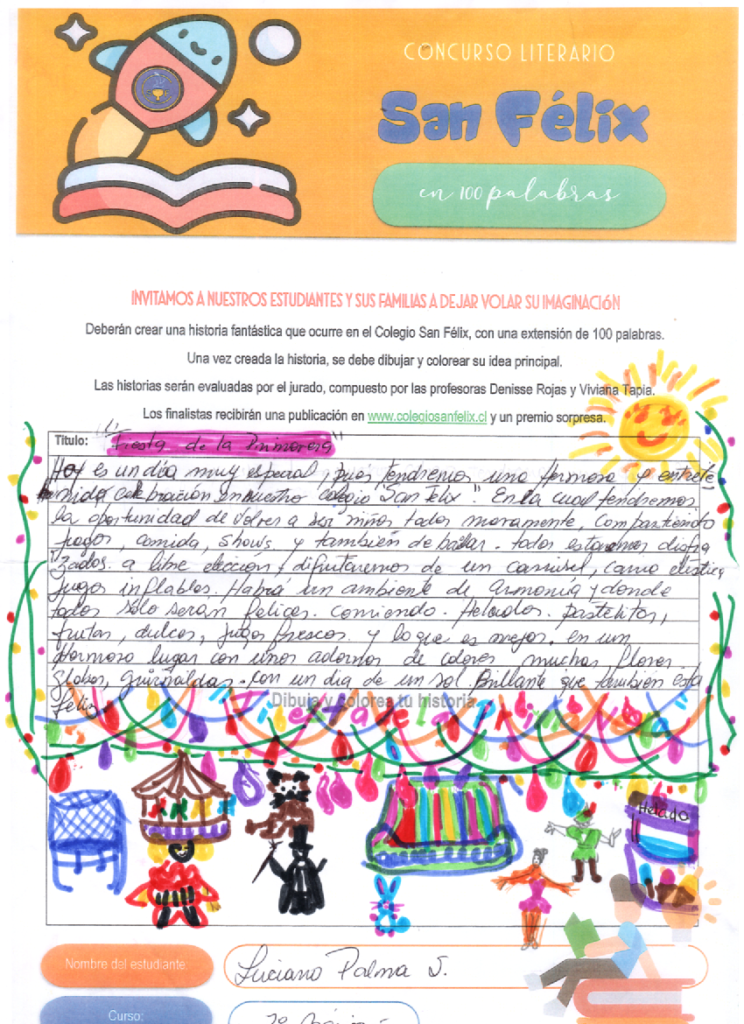 CONCURSO LITERARIO
San Félix
en 100 palabras
INVITAMOS A NUESTROS ESTUDIANTES Y SUS FAMILIAS A DEJAR VOLAR SU IMAGINACIÓN
Deberán crear una historia fantástica que ocurre en el Colegio San Félix, con una extensión de 100 palabras.
Una vez creada la historia, se debe dibujar y colorear su idea principal.
Las historias serán evaluadas por el jurado, compuesto por las profesoras Denisse Rojas y Viviana Tapia.
Los finalistas recibirán una publicación en www.colegiosanfelix.cl y un premio sorpresa.
Titulo: "Fiesta de la Primavera"
Hoy es un dia muy especial, pues tendremos una hermosa y entrete
nida celebración en nuestro colegio "San felix". En la cual tendremos
la oportunidad de volver a ser niños todos nuevamente, compartiendo
juegos, comida, shows, y también de bailar. todos estaremos disfra
zados. a libre elección, difrutaremos de un carrusel, cama elástica,
juegos inflables. Habrá un ambiente de Armonía y donde
todos sólo serán felices. comiendo. Helados. pastelitos,
frutas, dulces, jugos frescos. y lo que es mejor. en un
Hermoso lugar con unos adornos de colores, muchas flores.
globos, guirnaldas. con un dia de un sol. Brillante que también esta
feliz
Dibuja y colorea tu historia
Fiesta de la Primavera
Helado
Nombre del estudiante: Luciano Palma S.
Curso: